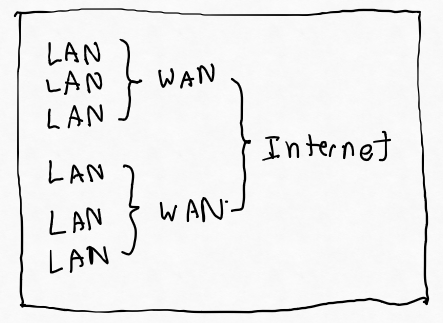 LAN
LAN
LAN
WAN
LAN
LAN
LAN
WAN
Internet